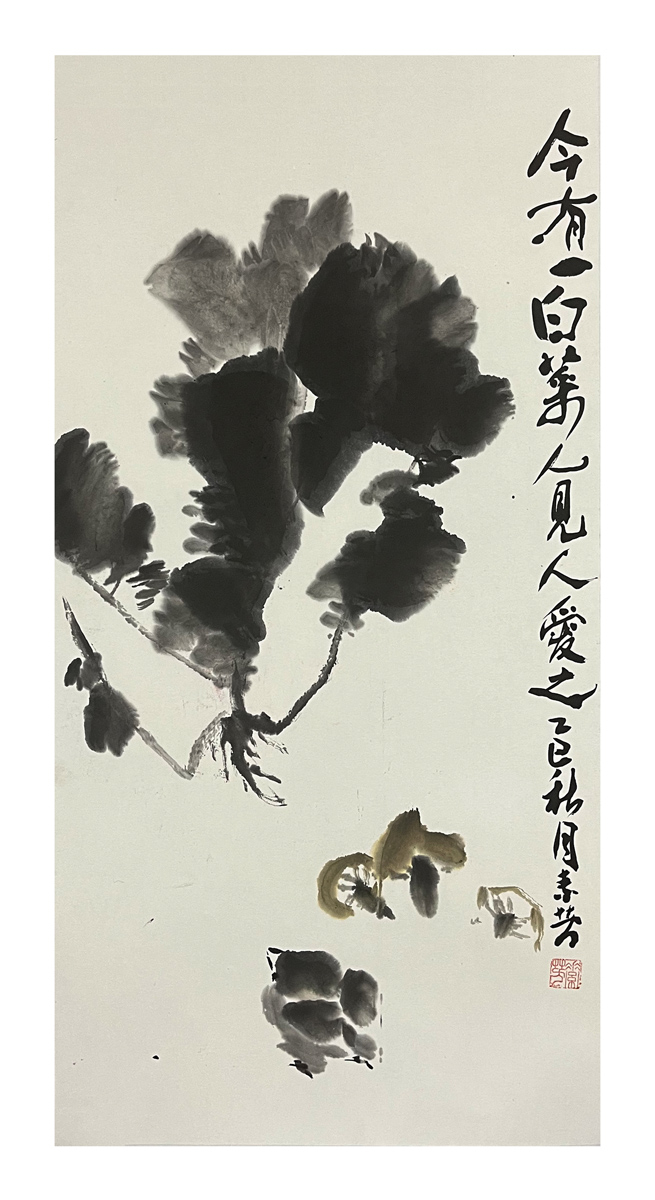 今有一白菜人见人愛之乙巳秋月素芳